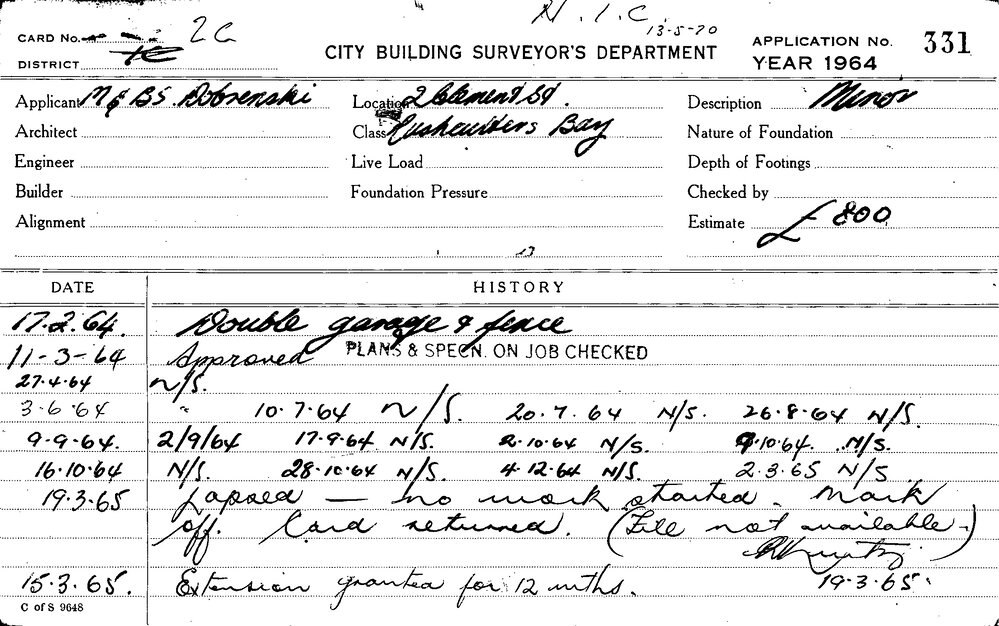 N.I.C
13-5-70
CARD No. 2C
DISTRICT
CITY BUILDING SURVEYOR'S DEPARTMENT
APPLICATION No. 331
YEAR 1964
Applicant M & BS. Dobrenski Location 2 Clement St. Description Minor
Architect Class Rushcutters Bay Nature of Foundation
Engineer Live Load Depth of Footings
Builder Foundation Pressure Checked by
Alignment Estimate £ 800
13
DATE HISTORY
17.2.64. Double garage & fence
11-3-64 Approved PLANS & SPECN. ON JOB CHECKED
27.4.64 N/S.
3.6.64 " 10.7.64 N/S. 20.7.64 N/S. 26.8.64 N/S.
9.9.64. 2/9/64 17.9.64 N/S. 2.10.64 N/S. 9.10.64. N/S.
16.10.64 N/S. 28.10.64 N/S. 4.12.64 N/S. 2.3.65 N/S
19.3.65 Lapsed — no work started. Mark
off. Card returned. (File not available.)
15.3.65. Extension granted for 12 mths. 19.3.65.
C of S 9648